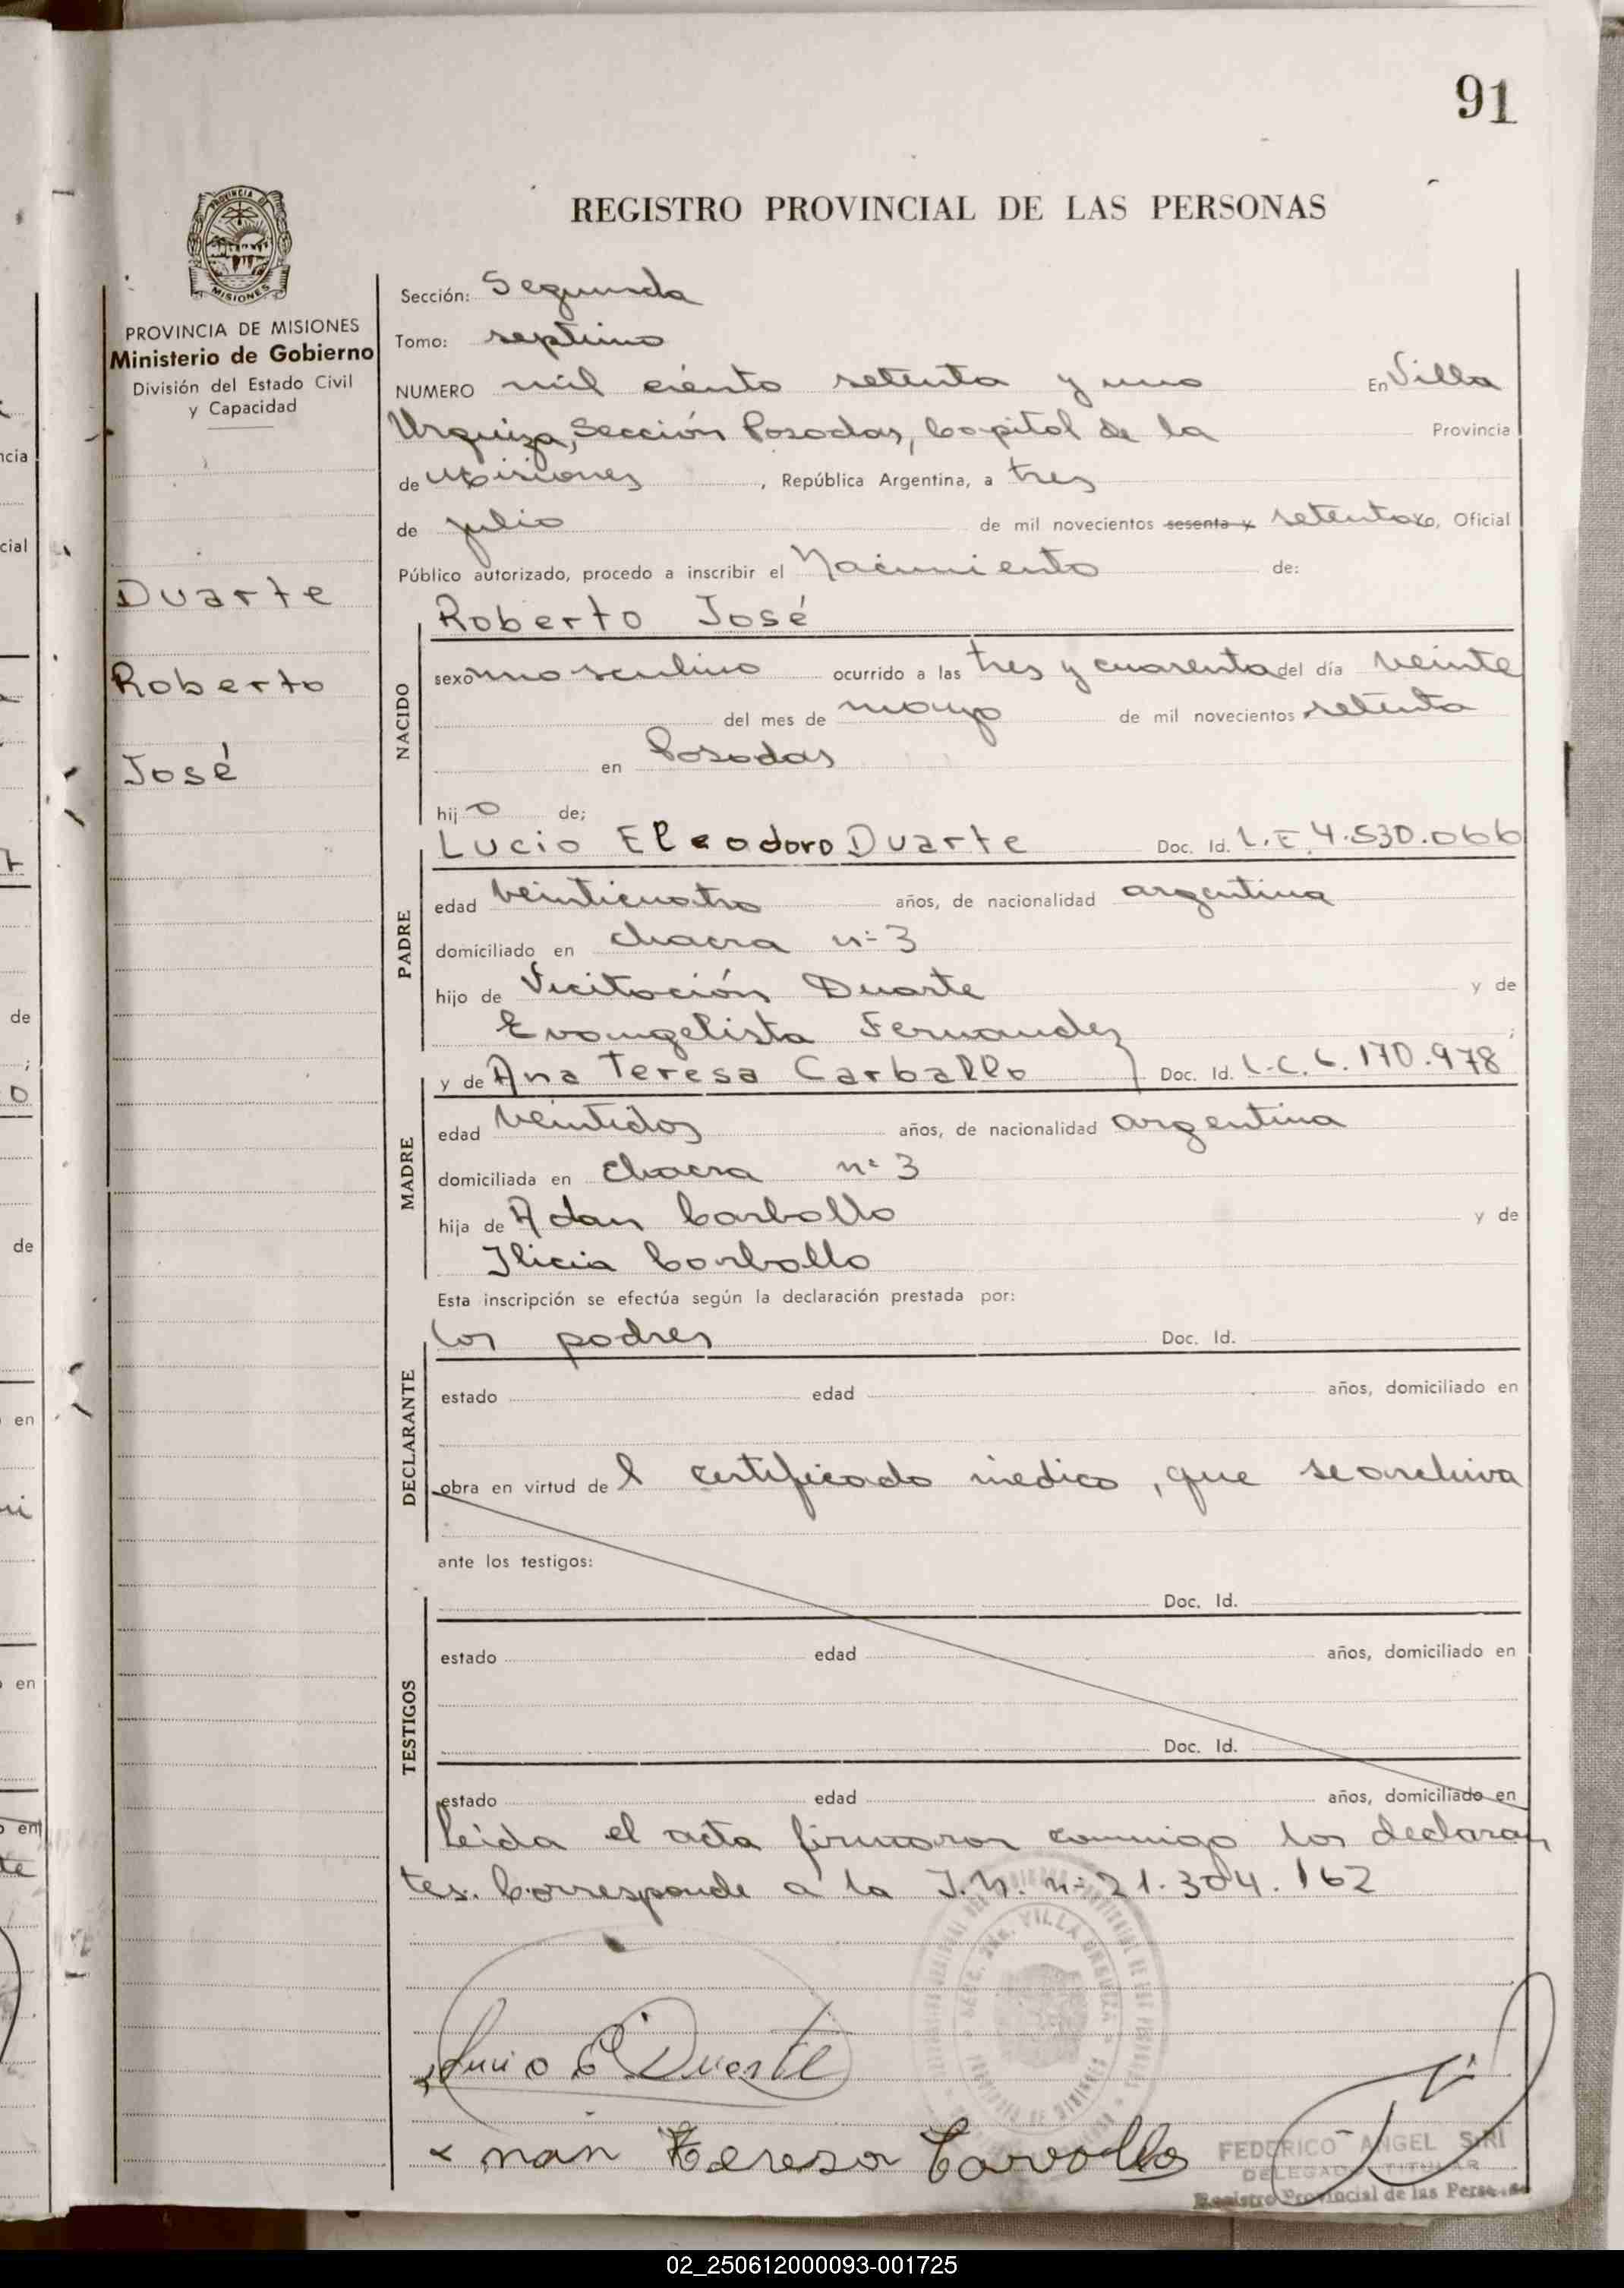 91
REGISTRO PROVINCIAL DE LAS PERSONAS
PROVINCIA DE
MISIONES
PROVINCIA DE MISIONES
Ministerio de Gobierno
División del Estado Civil
y Capacidad
Duarte
Roberto
José
Sección: Segunda
Tomo: septimo
NUMERO mil ciento setenta y uno En Villa
Urquiza, Sección Posadas, Capital de la Provincia
de Misiones, República Argentina, a tres
de julio de mil novecientos sesenta y setenta yo, Oficial
Público autorizado, procedo a inscribir el Nacimiento de:
Roberto José
NACIDO
sexo masculino ocurrido a las tres y cuarenta del día veinte
del mes de mayo de mil novecientos setenta
en Posadas
hijo de;
Lucio Eleodoro Duarte Doc. Id. L.E. 4.530.066
PADRE
edad veinticuatro años, de nacionalidad argentina
domiciliado en chacra nº 3
hijo de Vicitación Duarte y de
Evangelista Fernandez ;
y de Ana Teresa Carballo Doc. Id. L.C. 6.170.978
MADRE
edad veintidos años, de nacionalidad argentina
domiciliada en chacra nº 3
hija de Adan Carballo y de
Ilicia Carballo
Esta inscripción se efectúa según la declaración prestada por:
los padres Doc. Id.
DECLARANTE
estado edad años, domiciliado en
obra en virtud del certificado médico, que se archiva
ante los testigos:
Doc. Id.
TESTIGOS
estado edad años, domiciliado en
Doc. Id.
estado edad años, domiciliado en
Leída el acta firmaron conmigo los declaran
tes. Corresponde a la I.N. nº 21.304.162
VILLA URQUIZA
Lucio E Duarte
Teresa Carvallo
FEDERICO ANGEL SIRI
DELEGADO TITULAR
Registro Provincial de las Personas
02_250612000093-001725